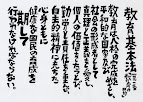 教育基本法
教育は人格の完成をめざし
平和的な国家及び
社会の形成者として
真理と正義を愛し
個人の価値をたっとび
勤労と責任を重んじ
自主的精神に充ちた
心身ともに
健康な国民の育成を
期して
行われなければならない